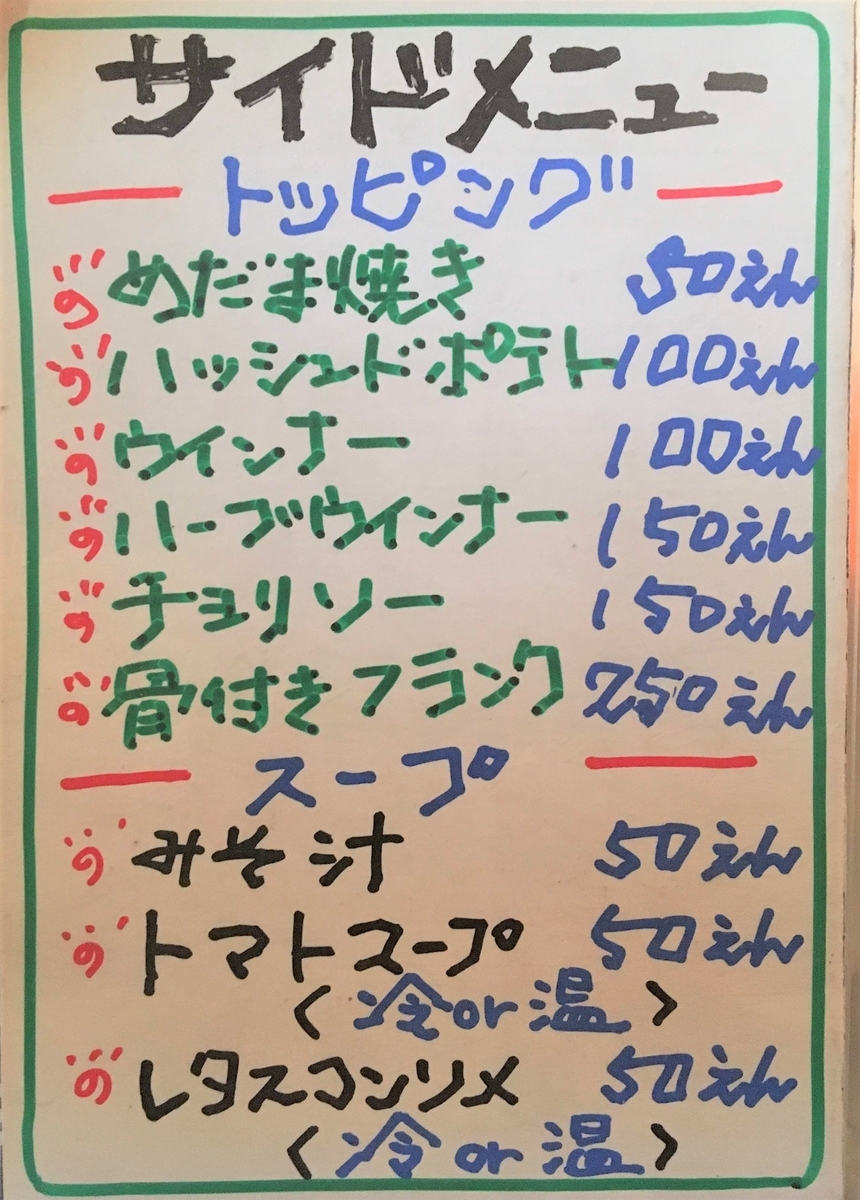 サイドメニュー
トッピング
めだま焼き 50えん
ハッシュドポテト 100えん
ウインナー 100えん
ハーブウインナー 150えん
チョリソー 150えん
骨付きフランク 250えん
スープ
みそ汁 50えん
トマトスープ 50えん
<冷or温>
レタスコンソメ 50えん
<冷or温>